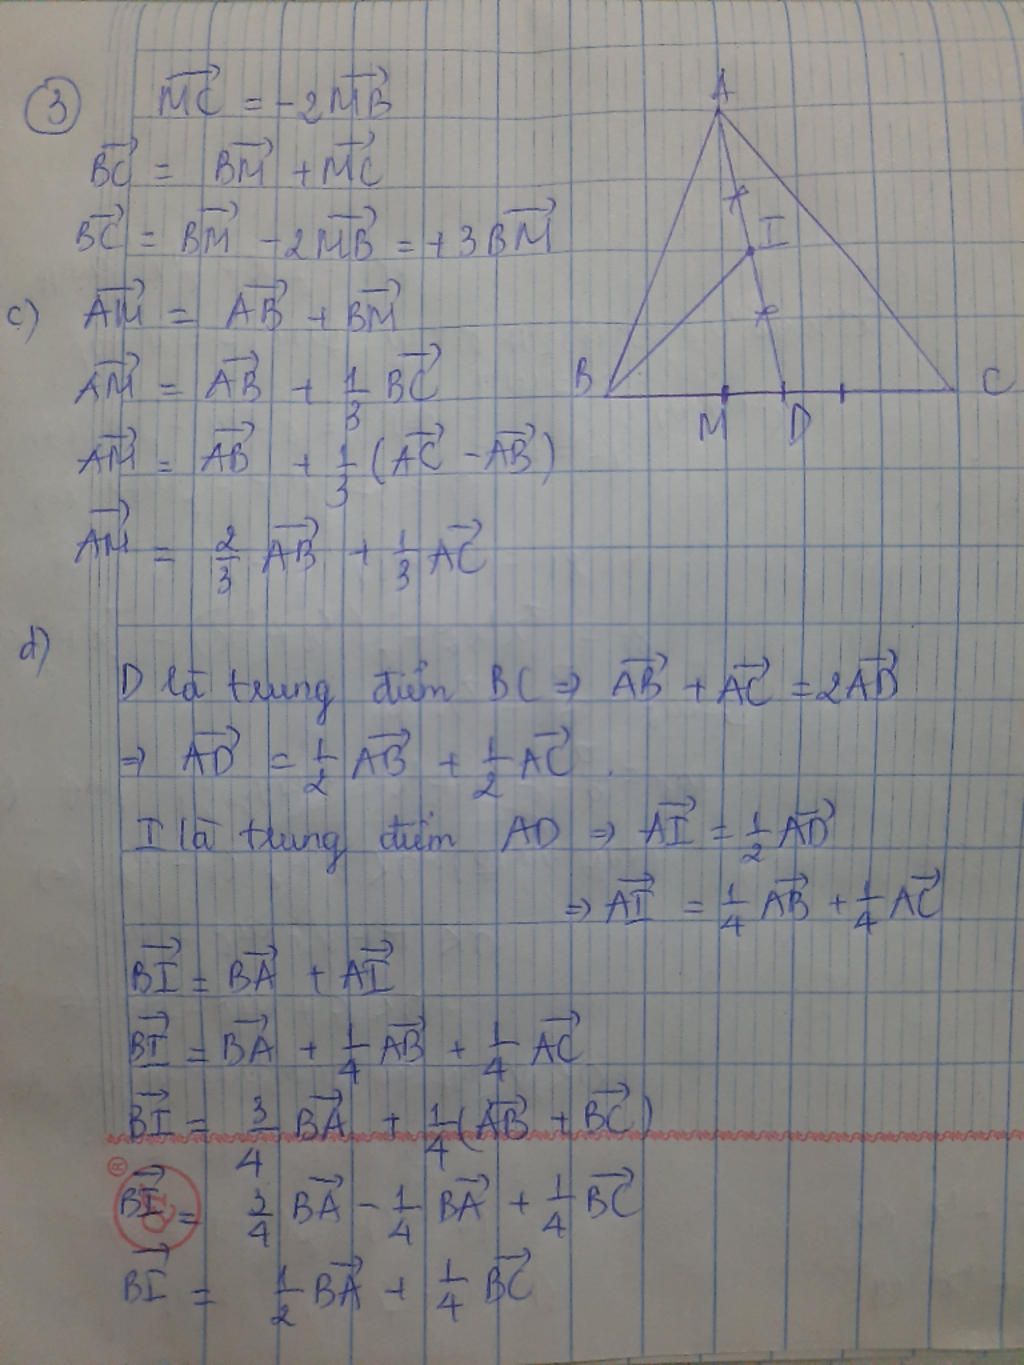 ③ $\overrightarrow{MC} = -2\overrightarrow{MB}$
$\overrightarrow{BC} = \overrightarrow{BM} + \overrightarrow{MC}$
$\overrightarrow{BC} = \overrightarrow{BM} - 2\overrightarrow{MB} = +3\overrightarrow{BM}$
c) $\overrightarrow{AM} = \overrightarrow{AB} + \overrightarrow{BM}$
$\overrightarrow{AM} = \overrightarrow{AB} + \frac{1}{3}\overrightarrow{BC}$
$\overrightarrow{AM} = \overrightarrow{AB} + \frac{1}{3}(\overrightarrow{AC} - \overrightarrow{AB})$
$\overrightarrow{AM} = \frac{2}{3}\overrightarrow{AB} + \frac{1}{3}\overrightarrow{AC}$
A
I
B
C
M
D
d)
D là trung điểm BC ⇒ $\overrightarrow{AB} + \overrightarrow{AC} = 2\overrightarrow{AD}$
⇒ $\overrightarrow{AD} = \frac{1}{2}\overrightarrow{AB} + \frac{1}{2}\overrightarrow{AC}$.
I là trung điểm AD ⇒ $\overrightarrow{AI} = \frac{1}{2}\overrightarrow{AD}$
⇒ $\overrightarrow{AI} = \frac{1}{4}\overrightarrow{AB} + \frac{1}{4}\overrightarrow{AC}$
$\overrightarrow{BI} = \overrightarrow{BA} + \overrightarrow{AI}$
$\overrightarrow{BI} = \overrightarrow{BA} + \frac{1}{4}\overrightarrow{AB} + \frac{1}{4}\overrightarrow{AC}$
$\overrightarrow{BI} = \frac{3}{4}\overrightarrow{BA} + \frac{1}{4}(\overrightarrow{AB} + \overrightarrow{BC})$
®
$\overrightarrow{BI} = \frac{3}{4}\overrightarrow{BA} - \frac{1}{4}\overrightarrow{BA} + \frac{1}{4}\overrightarrow{BC}$
$\overrightarrow{BI} = \frac{1}{2}\overrightarrow{BA} + \frac{1}{4}\overrightarrow{BC}$